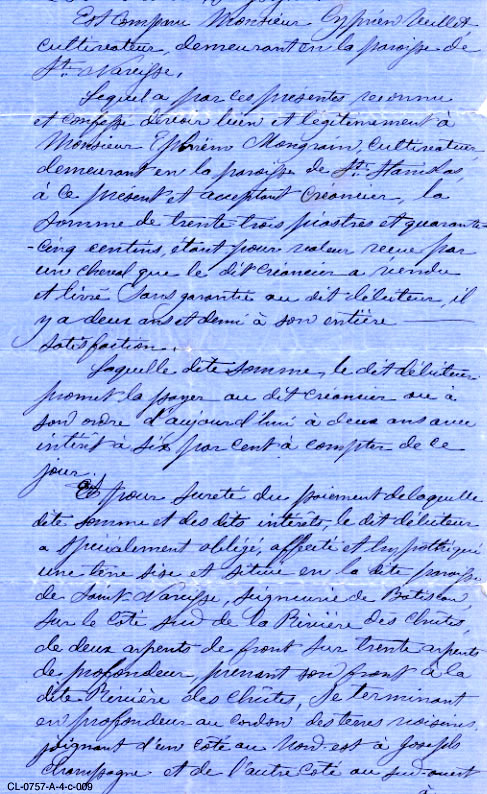 Est comparu Monsieur Cyprien Veillet
cultivateur, demeurant en la paroisse de
St. Narcisse.
Lequel a par ces présentes reconnu
et confessé devoir bien et légitimement à
Monsieur Ephrèm Mongrain, cultivateur
demeurant en la paroisse de St. Stanislas,
à ce présent et acceptant créancier, la
somme de trente trois piastres et quarante-
-cinq centins, étant pour valeur reçue par
un cheval que le dit créancier a vendu
et livré sans garantie au dit débiteur, il
y a deux ans et demi à son entière
satisfaction.
Laquelle dite somme, le dit débiteur
promet la payer au dit créancier ou à
son ordre d'aujourd'hui à deux ans avec
intérêt à six par cent à compter de ce
jour.
Et pour sureté du paiement de laquelle
dite somme et des dits intérêts, le dit débiteur
a spécialement obligé, affecté et hypothéqué
une terre sise et située en la dite paroisse
de Saint Narcisse, seigneurie de Batiscan,
sur le coté sud de la Rivière des Chûtes,
de deux arpents de front sur trente arpents
de profondeur, prenant son front à la
dite Rivière des Chûtes, se terminant
en profondeur au cordon des terres voisines
joignant d'un coté au Nord-est à Joseph
Champagne et de l'autre coté au sud-ouest
à
CL-0757-A-4-c-009